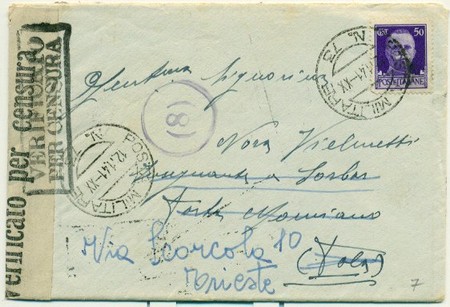 Verificato per censura
VERIFICATO
PER CENSURA
CENT 50
POSTE ITALIANE
POSTA MILITARE N. 73
12.1.41-XX
(8)
POSTA MILITARE N.
12.1.41-XX
Gentma Signorina
Nora
Insegnante a
Porte Momiano
Via Scorcola 10
(Pola)
Trieste
7